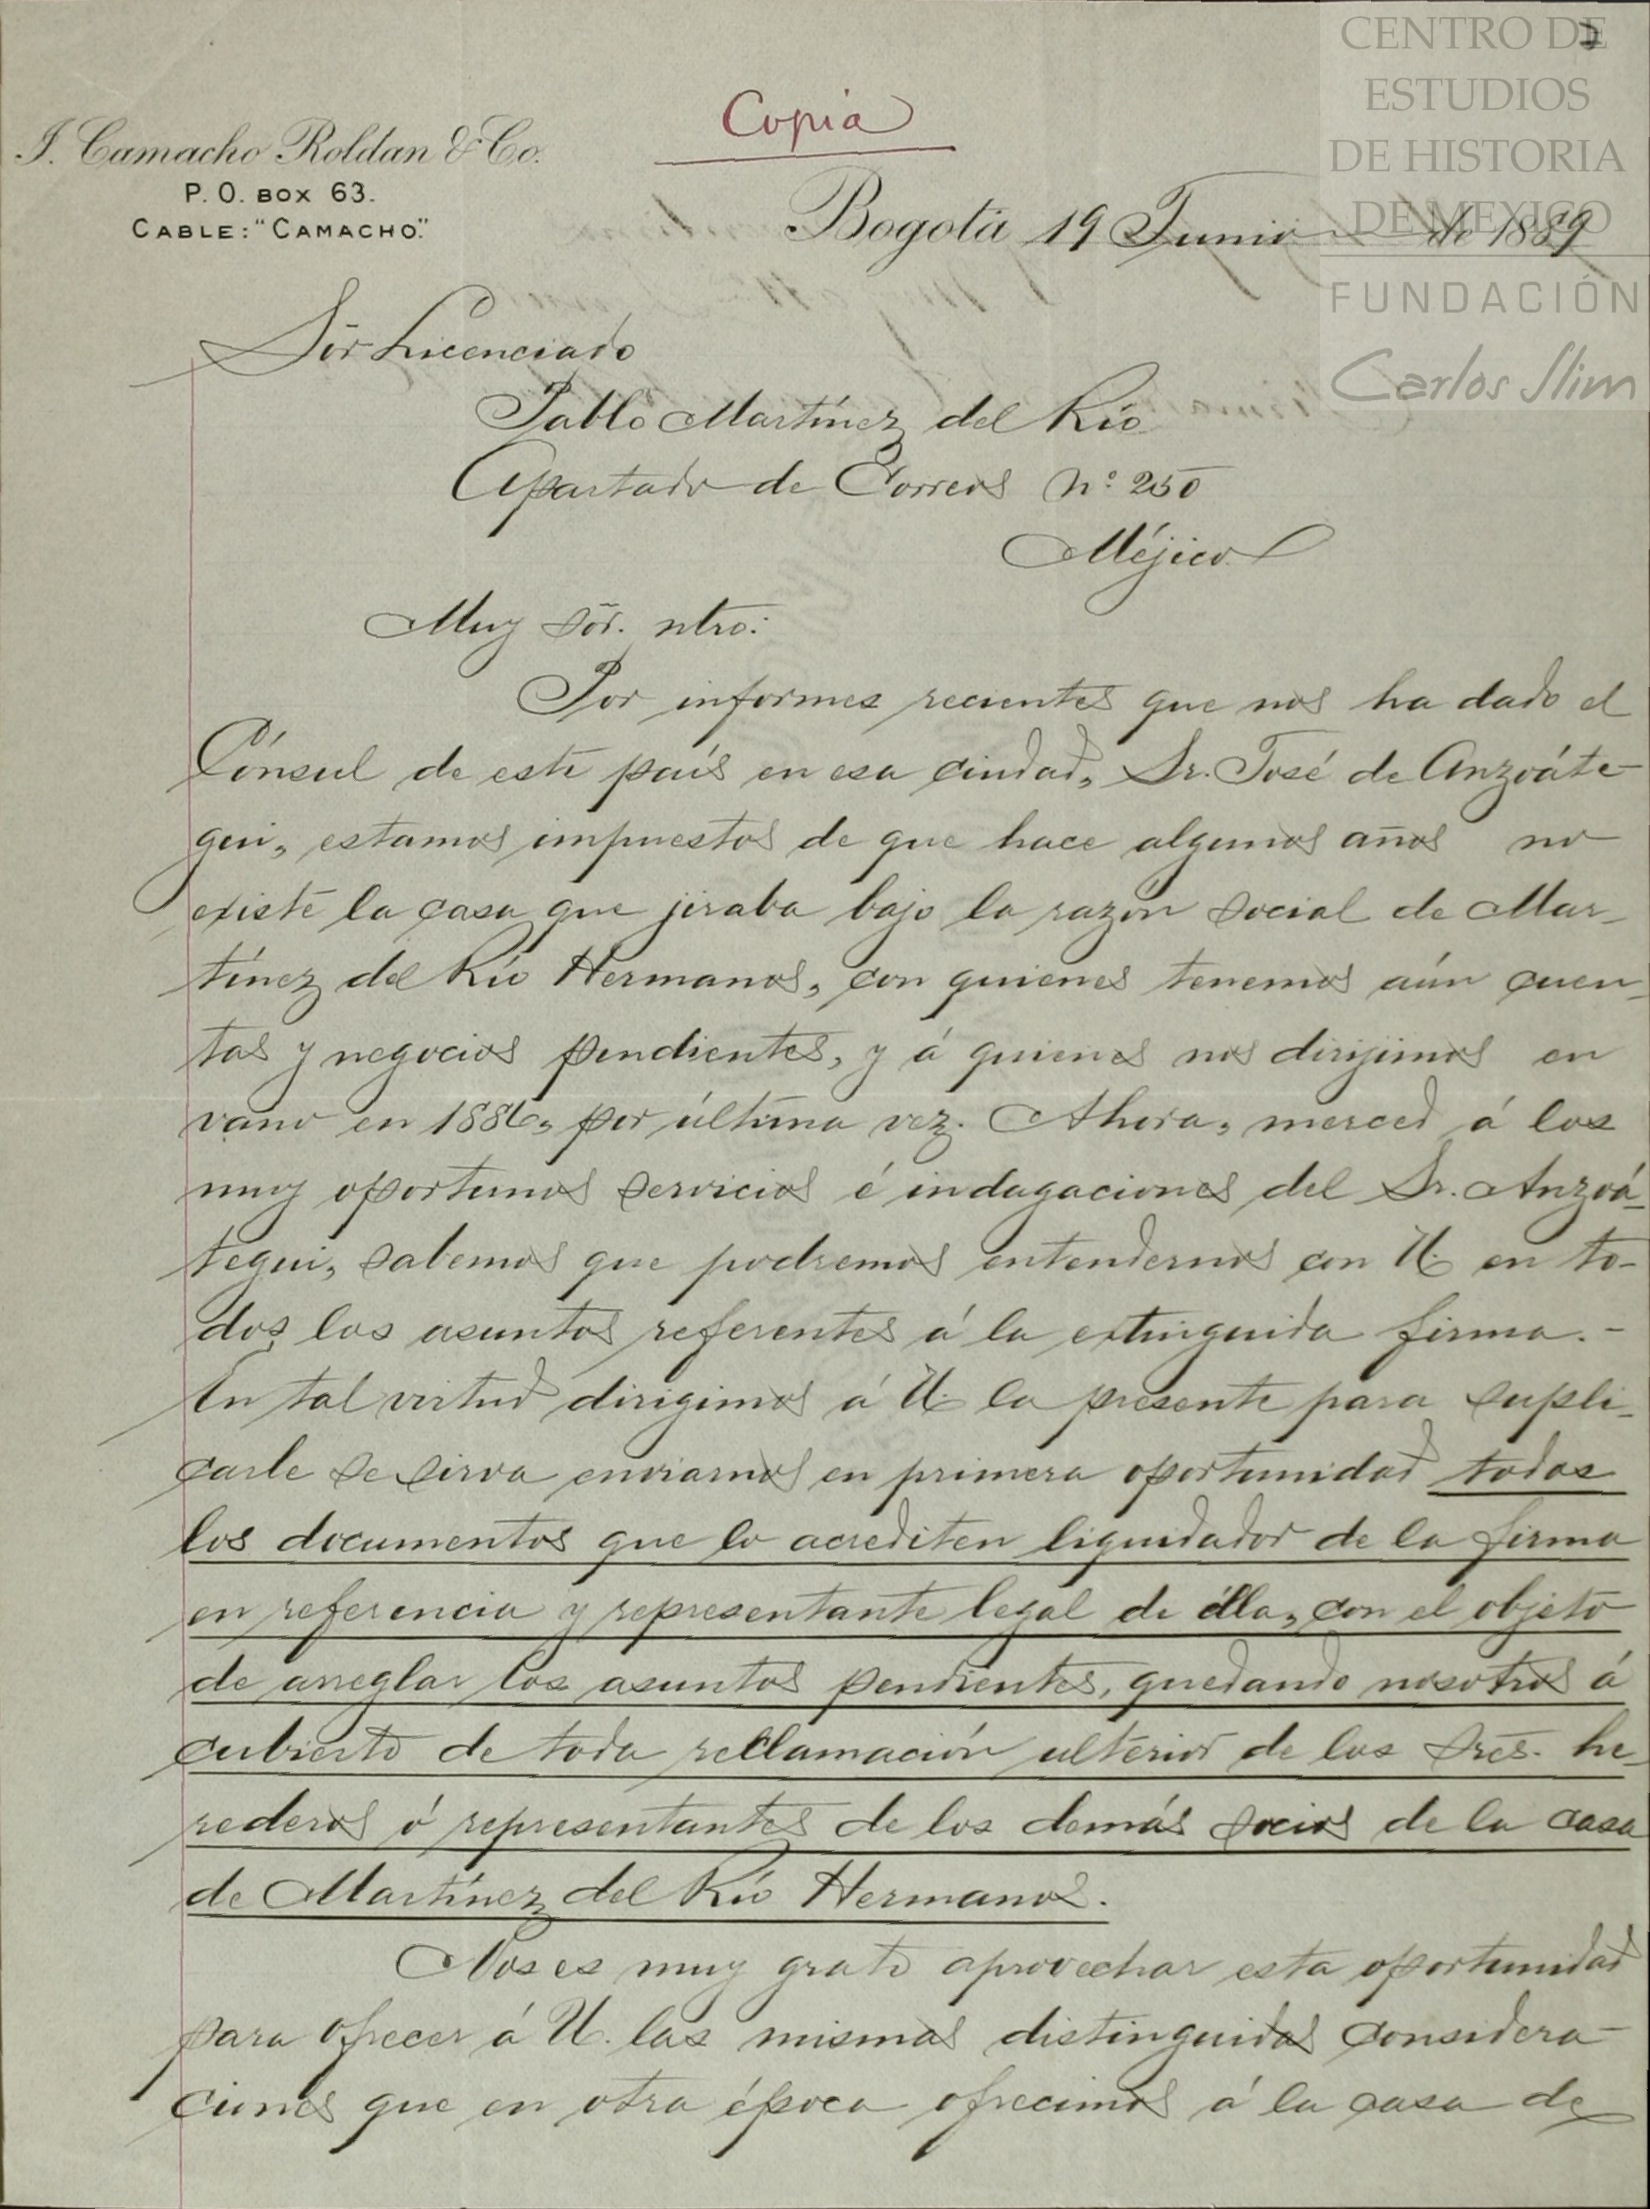 CENTRO DE
ESTUDIOS
DE HISTORIA
DE MEXICO
FUNDACIÓN
Carlos Slim
Copia
J. Camacho Roldan & Co.
P. O. BOX 63.
CABLE: "CAMACHO."
Bogotá 19 Junio de 1889
Sōr Licenciado
Pablo Martínez del Río
Apartado de Correos Nº 250
Méjico
Muy sōr. ntro:
Por informes recientes que nos ha dado el
Cónsul de este país en esa ciudad, Sr. José de Anzoáte-
gui, estamos impuestos de que hace algunos años no
existe la casa que jiraba bajo la razón social de Mar-
tínez del Río Hermanos, con quienes tenemos aún cuen-
tas y negocios pendientes, y á quienes nos dirijimos en
vano en 1886, por última vez. Ahora, merced á los
muy oportunos servicios é indagaciones del Sr. Anzoá-
tegui, sabemos que podremos entendernos con U. en to-
dos los asuntos referentes á la extinguida firma.-
En tal virtud dirigimos á U. la presente para supli-
carle se sirva enviarnos en primera oportunidad todos
los documentos que lo acrediten liquidador de la firma
en referencia y representante legal de élla, con el objeto
de arreglar los asuntos pendientes, quedando nosotros á
cubierto de toda reclamación ulterior de los Sres. he-
rederos ó representantes de los demás socios de la casa
de Martínez del Río Hermanos.
Nos es muy grato aprovechar esta oportunidad
para ofrecer á U. las mismas distinguidas considera-
ciones que en otra época ofrecimos á la casa de